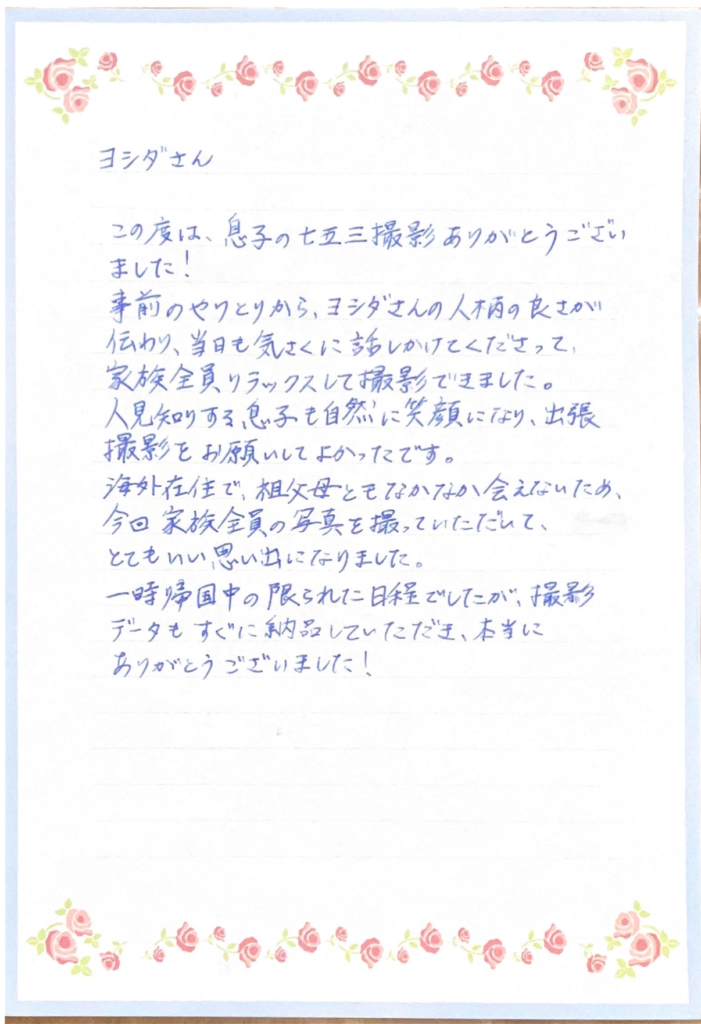 ヨシダさん
この度は、息子の七五三撮影ありがとうござい
ました！
事前のやりとりから、ヨシダさんの人柄の良さが
伝わり、当日も気さくに話しかけてくださって、
家族全員リラックスして撮影できました。
人見知りする息子も自然に笑顔になり、出張
撮影をお願いしてよかったです。
海外在住で、祖父母ともなかなか会えないため、
今回家族全員の写真を撮っていただいて、
とてもいい思い出になりました。
一時帰国中の限られた日程でしたが、撮影
データもすぐに納品していただき、本当に
ありがとうございました！